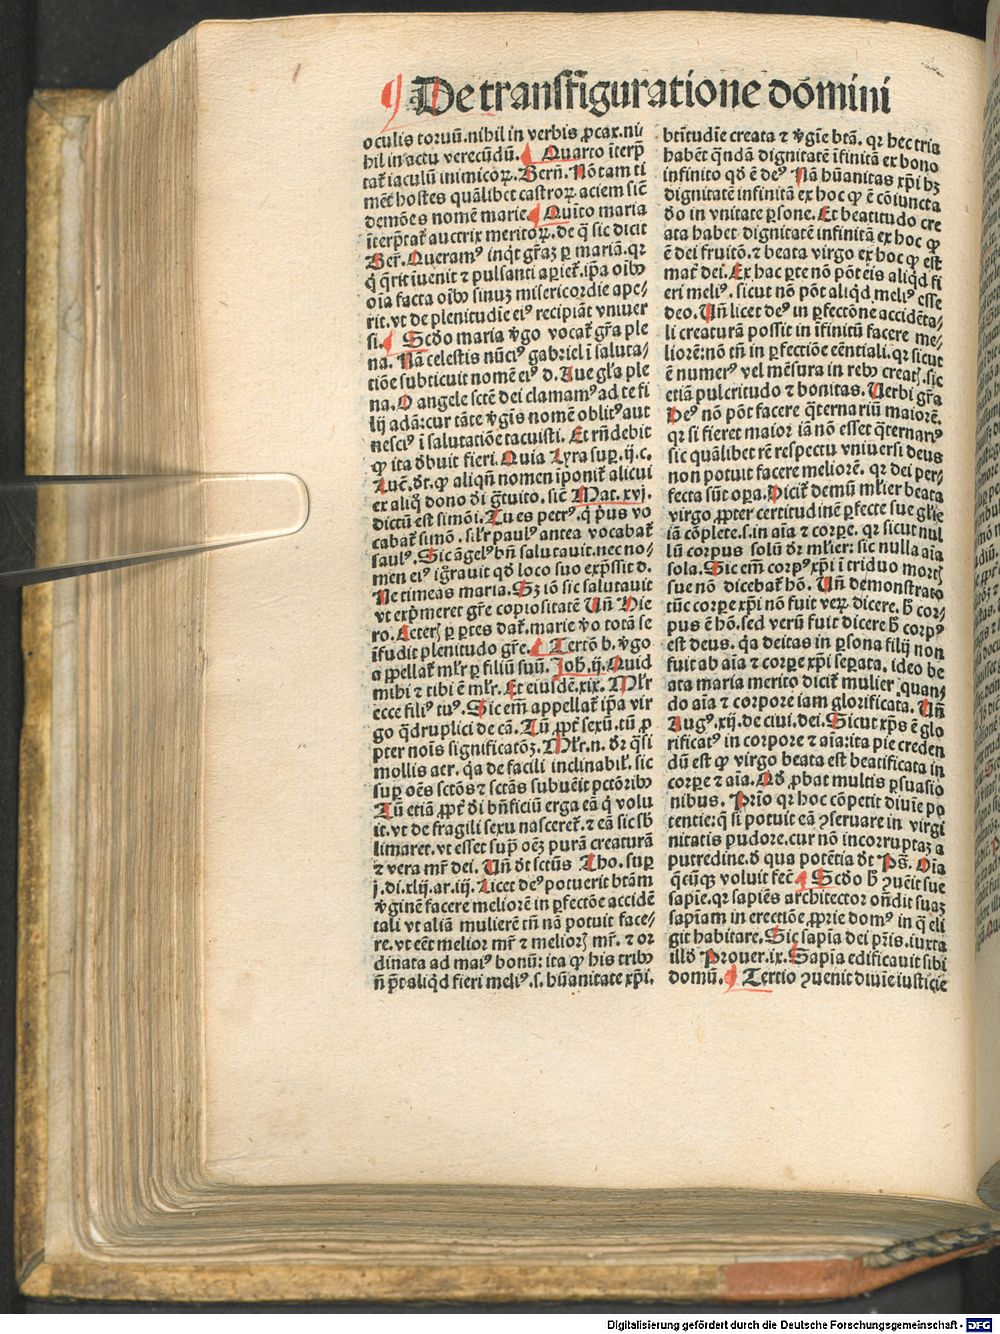 De transfiguratione dōmini
oculis toruū.nihil in verbis ꝓcax.ni⸗
hil in actu verecūdū. Quarto īterp̄
tat̄ iaculū inimicoꝝ. Bern̄. Nō tam ti
mēt hostes quālibet castroꝝ aciem siē
demōes nomē marie. Quīto maria
īterp̄tat̄ auctrix meritoꝝ. de q̄ sic dicit
Ber̄. Queramꝰ inq̇t gr̄aȝ ꝑ mariā. qꝛ
q̇ q̄rit iuenit ⁊ pulsanti aꝑiet̄. ip̄a oībꝰ
oīa facta oībꝰ sinuȝ misericordie ape⸗
rit. vt de plenitudīe eiꝰ recipiāt vniuer
si. Scḋo maria v̄go vocat̄ gr̄a ple
na. Nā celestis nūciꝰ gabriel ī saluta⸗
tiōe subticuit nomē eiꝰ d. Aue gr̄a ple
na. O angele sctē dei clamamꝰ ad te fi
lij adā: cur tāte v̄gīs nomē oblitꝰ aut
nesciꝰ ī salutatiōe tacuisti. Et rn̄debit
ꝙ ita ḋbuit fieri. Quia Lyra suꝑ. ij. c.
Luē. ḋt. ꝙ aliqn̄ nomen īponit̄ alicui
ex aliq̇ dono ḋi g̈tuito. siē Mat. xvj.
dictū est simōi. Tu es petrꝰ. q̇ pͥus vo
cabat̄ simō. sil̄r paulꝰ antea vocabat̄
saulꝰ. Sic āgelꝰ bn̄ salutauit. nec no⸗
men eiꝰ iḡrauit qḋ loco suo exp̄ssit d.
Ne timeas maria. Sȝ iō sic salutauit
vt exp̄meret gr̄e copiositatē Un̄ Hie
ro. Ceteꝝ ꝑ ꝑtes dat̄. marie v̄o totā se
īfudit plenitudo gr̄e. Tertō b. v̄go
aꝑpellat̄ ml̄r ꝑ filiū suū. Joh̄. ij. Quid
mihi ⁊ tibi ē ml̄r. Et eiusdē. xix. Ml̄r
ecce filiꝰ tuꝰ. Sic em̄ appellat̄ ip̄a vir
go q̈druplici de cā. Tū ꝓpt̄ sexū. tū ꝓ
pter noīs significatōȝ. Ml̄r. n. ḋr q̈si
mollis aer. q̇a de facili inclinabil̄. sic
suꝑ oēs sctōs ⁊ sctās subuēit pctōribꝰ
Tū etiā ꝓpt̄ ḋi bn̄ficiū erga eā q̇ volu
it. vt de fragili sexu nasceret̄. ⁊ eā sic sb̄
limaret. vt esset sup̄ oēȝ purā creaturā
⁊ vera mr̄ dei. Un̄ ḋt sctūs Tho. suꝑ
j. di. xlij. ar. iij. Licet deꝰ potuerit btām
v̄ginē facere meliorē in ꝑfectōe accidē
tali vt aliā mulierē tn̄ nā potuit face⸗
re. vt eēt melior mr̄ ⁊ melioꝝ mr̄. ⁊ or
dinata ad maiꝰ bonū: ita ꝙ his tribꝰ
n̄ pōt aliqḋ fieri meliꝰ. s. hūanitate xp̄i.
btītudīe creata ⁊ v̄gīe btā. qꝛ hec tria
habēt q̄ndā dignitatē īfinitā ex bono
infinito qḋ ē deꝰ Nā hūanitas xp̄i hȝ
dignitatē infinitā ex hoc ꝙ ē cōiuncta
ḋo in vnitate ꝑsone. Et beatitudo cre
ata habet dignitatē infinitā ex hoc ꝙ
ē dei fruitō. ⁊ beata virgo ex hoc ꝙ est
mat̄ dei. Ex hac ꝑte nō pōt eis aliqḋ fi
eri meliꝰ. sicut nō pōt aliqḋ meliꝰ esse
deo. Un̄ licet deꝰ in ꝑfectōne accidēta⸗
li creaturā possit in īfinitū facere me⸗
liorē: nō tn̄ in ꝑfectiōe eēntiali. qꝛ sicut
ē numerꝰ vel mēsura in rebꝰ creat̄ꝫ. sic
etiā pulcritudo ⁊ bonitas. Uerbi gr̄a
Deꝰ nō pōt facere q̄ternariū maiorē.
qꝛ si fieret maior iā nō esset q̄ternariꝰ
sic quālibet rē respectu vniuersi deus
non potuit facere meliorē. qꝛ dei per⸗
fecta sūt oꝑa. Dicit̄ demū ml̄ier beata
virgo ꝓpter certitudinē ꝑfecte sue gl̄ie
iā cōplete. s. in aīa ⁊ corꝑe. qꝛ sicut nul
lū corpus solū ḋr ml̄ier: sic nulla aīa
sola. Sic em̄ corpꝰ xp̄i ī triduo mortꝫ
sue nō dicebat̄ hō. Un̄ demonstrato
tūc corꝑe xp̄i nō fuit veꝝ dicere. h̄ cor⸗
pus ē hō. sed verū fuit dicere h̄ corpꝰ
est deus. q̇a deitas in ꝑsona filij non
fuit ab aīa ⁊ corꝑe xp̄i seꝑata. ideo be
ata maria merito dicit̄ mulier quan⸗
do aīa ⁊ corpore iam glorificata. Un̄
Augꝰ. xij. de ciui. dei. Sicut xp̄s ē glo
rificatꝰ in corpore ⁊ aīa: ita pie creden
dū est ꝙ virgo beata est beatificata in
corꝑe ⁊ aīa. Qḋ ꝓbat multis ꝑsuasio
nibus. Prīo qꝛ hoc cōpetit diuīe po
tentie: q̇ si potuit eā ꝯseruare in virgi
nitatis pudore. cur nō incorruptaȝ a
putredine. ḋ qua potētia ḋt Ps̄. Oīa
q̄cūqꝫ voluit fec̄ Scḋo b̄ ꝯuēit sue
sapīe. qꝛ sapiēs architector on̄dit suaȝ
sapīam in erectiōe ꝓprie domꝰ in q̄ eli
git habitare. Sic sapīa dei pr̄is. iuxta
illḋ Prouer. ix. Sapīa edificauit sibi
domū. Tertio ꝯuenit diuīe iusticie
Digitalisierung gefördert durch die Deutsche Forschungsgemeinschaft - DFG